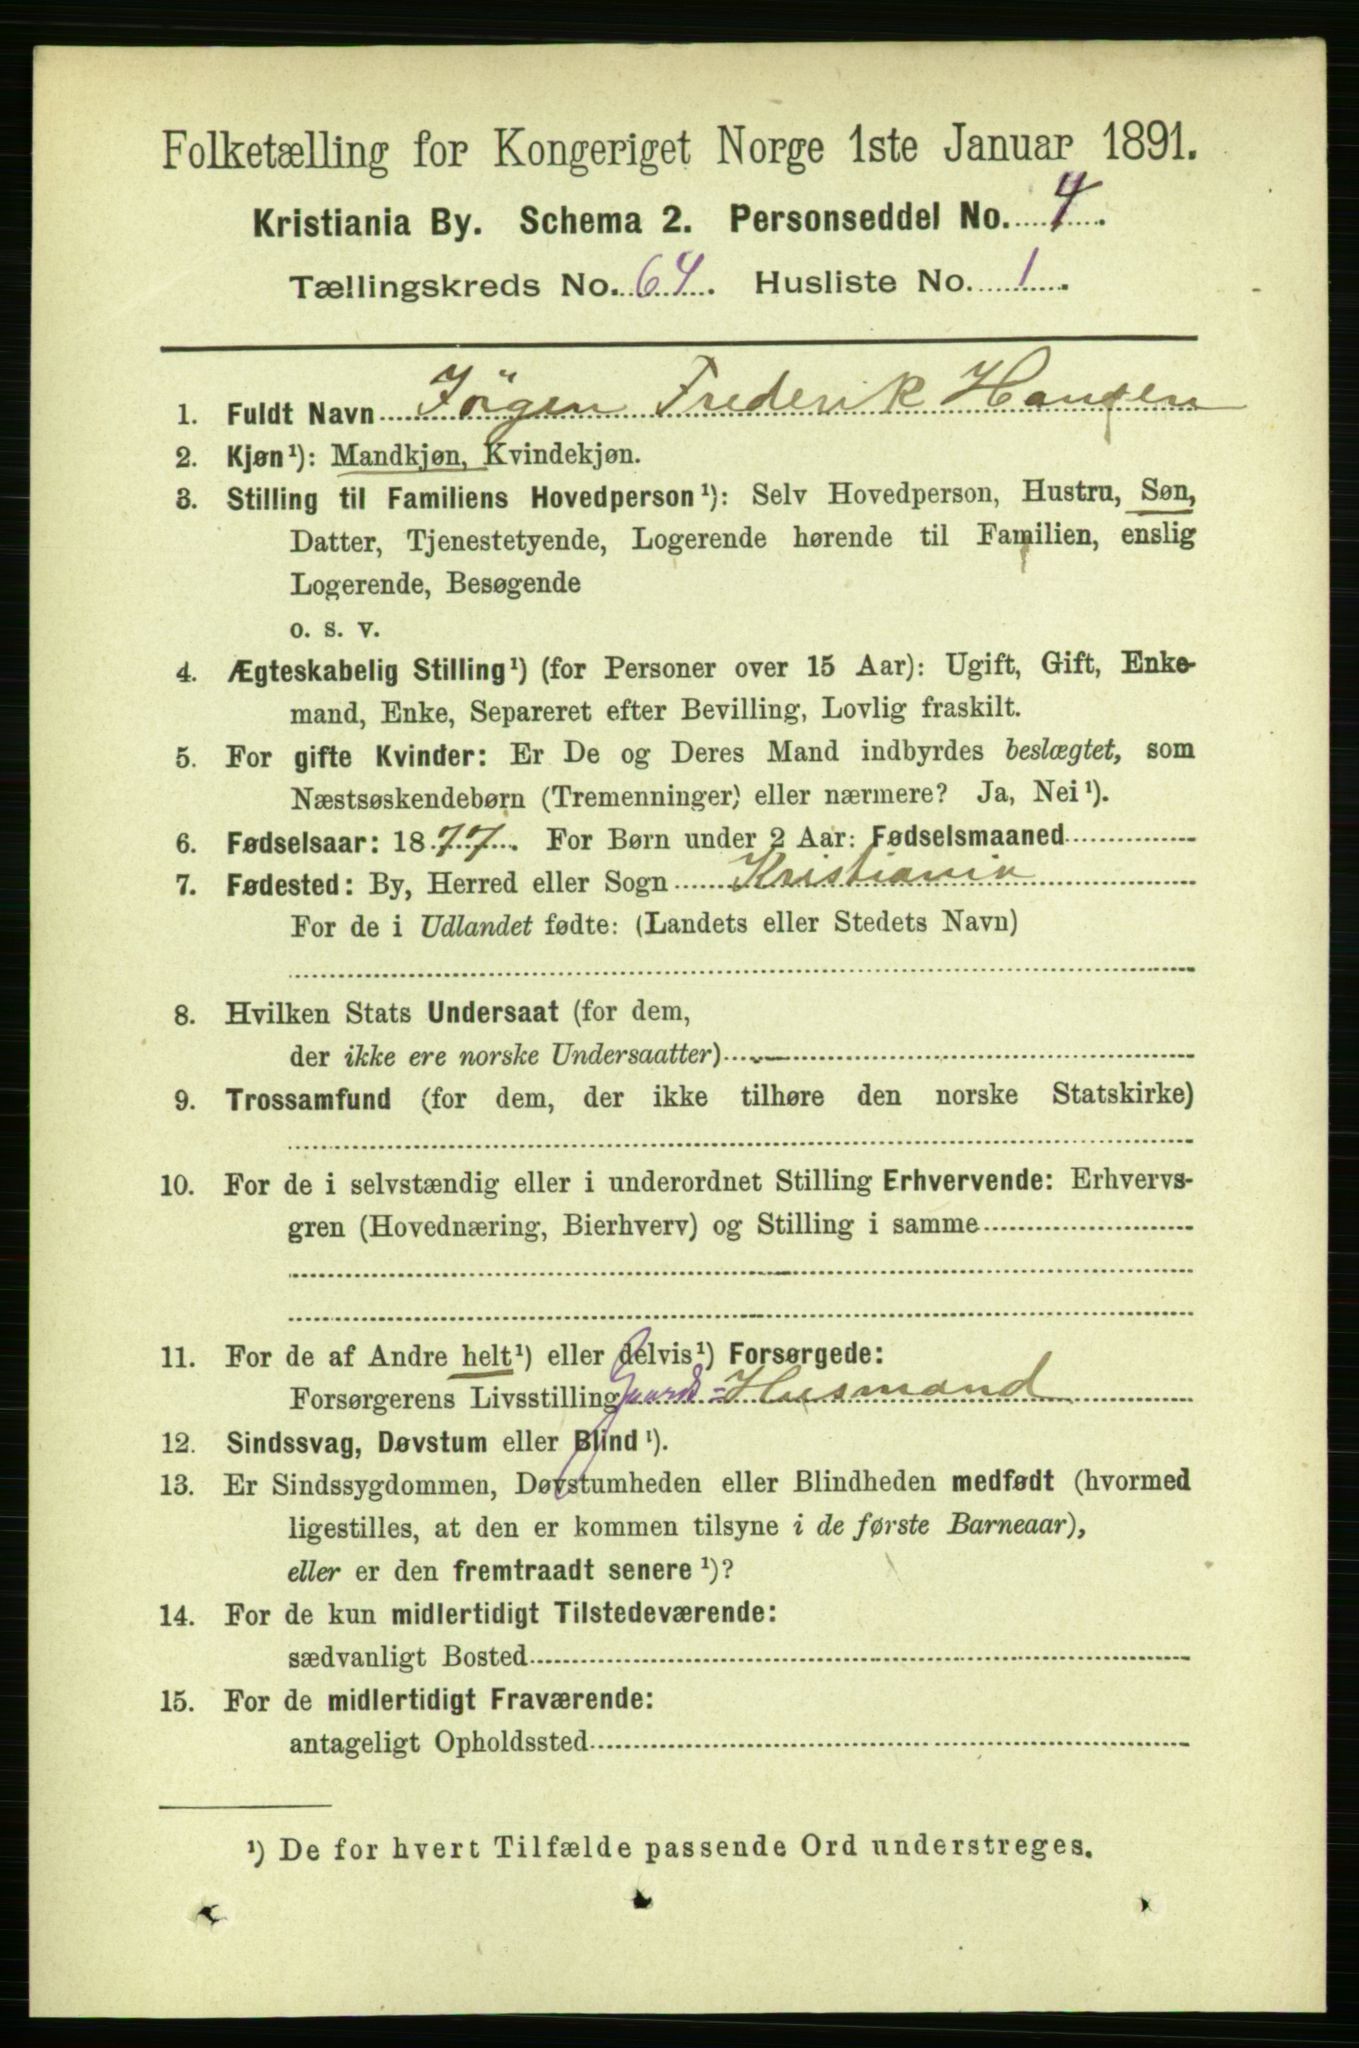 Folketælling for Kongeriget Norge 1ste Januar 1891.
Kristiania By. Schema 2. Personseddel No. 4.
Tællingskreds No. 64. Husliste No. 1.
1. Fuldt Navn Jörgen Frederik Hansen
2. Kjøn¹): Mandkjøn, Kvindekjøn.
3. Stilling til Familiens Hovedperson¹): Selv Hovedperson, Hustru, Søn,
Datter, Tjenestetyende, Logerende hørende til Familien, enslig
Logerende, Besøgende
o. s. v.
4. Ægteskabelig Stilling¹) (for Personer over 15 Aar): Ugift, Gift, Enke-
mand, Enke, Separeret efter Bevilling, Lovlig fraskilt.
5. For gifte Kvinder: Er De og Deres Mand indbyrdes beslægtet, som
Næstsøskendebørn (Tremenninger) eller nærmere? Ja, Nei¹).
6. Fødselsaar: 1877. For Børn under 2 Aar: Fødselsmaaned
7. Fødested: By, Herred eller Sogn Kristiania
For de i Udlandet fødte: (Landets eller Stedets Navn)
8. Hvilken Stats Undersaat (for dem,
der ikke ere norske Undersaatter)
9. Trossamfund (for dem, der ikke tilhøre den norske Statskirke)
10. For de i selvstændig eller i underordnet Stilling Erhvervende: Erhvervs-
gren (Hovednæring, Bierhverv) og Stilling i samme
11. For de af Andre helt¹) eller delvis¹) Forsørgede:
Forsørgerens Livsstilling Gaards= Husmand
12. Sindssvag, Døvstum eller Blind¹).
13. Er Sindssygdommen, Døvstumheden eller Blindheden medfødt (hvormed
ligestilles, at den er kommen tilsyne i de første Barneaar),
eller er den fremtraadt senere¹)?
14. For de kun midlertidigt Tilstedeværende:
sædvanligt Bosted
15. For de midlertidigt Fraværende:
antageligt Opholdssted
¹) De for hvert Tilfælde passende Ord understreges.